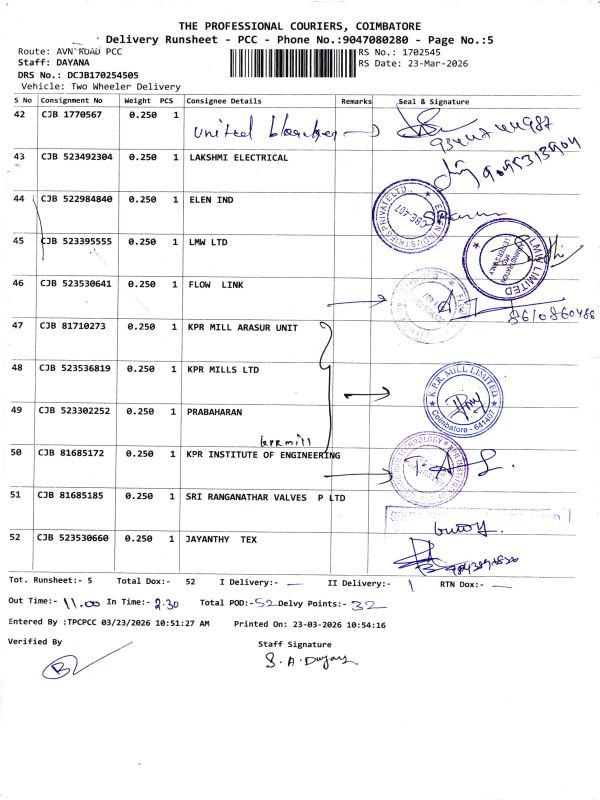 THE PROFESSIONAL COURIERS, COIMBATORE
Delivery Runsheet - PCC - Phone No.:9047080280 - Page No.:5
Route: AVN ROAD PCC RS No.: 1702545
Staff: DAYANA RS Date: 23-Mar-2026
DRS No.: DCJB170254505
Vehicle: Two Wheeler Delivery
S No Consignment No Weight PCS Consignee Details Remarks Seal & Signature
42 CJB 1770567 0.250 1 United
43 CJB 523492304 0.250 1 LAKSHMI ELECTRICAL 9095313904
44 CJB 522984840 0.250 1 ELEN IND
45 CJB 523395555 0.250 1 LMW LTD
LMW LIMITED
46 CJB 523530641 0.250 1 FLOW LINK
8610860488
47 CJB 81710273 0.250 1 KPR MILL ARASUR UNIT
48 CJB 523536819 0.250 1 KPR MILLS LTD
K.P.R. MILL LIMITED
Coimbatore - 641407
49 CJB 523302252 0.250 1 PRABAHARAN
kpr mill
50 CJB 81685172 0.250 1 KPR INSTITUTE OF ENGINEERING
51 CJB 81685185 0.250 1 SRI RANGANATHAR VALVES P LTD
52 CJB 523530660 0.250 1 JAYANTHY TEX
Tot. Runsheet:- 5 Total Dox:- 52 I Delivery:- — II Delivery:- 1 RTN Dox:- —
Out Time:- 11.00 In Time:- 2.30 Total POD:- 52 Delvy Points:- 32
Entered By :TPCPCC 03/23/2026 10:51:27 AM Printed On: 23-03-2026 10:54:16
Verified By Staff Signature
S. A. Dayana